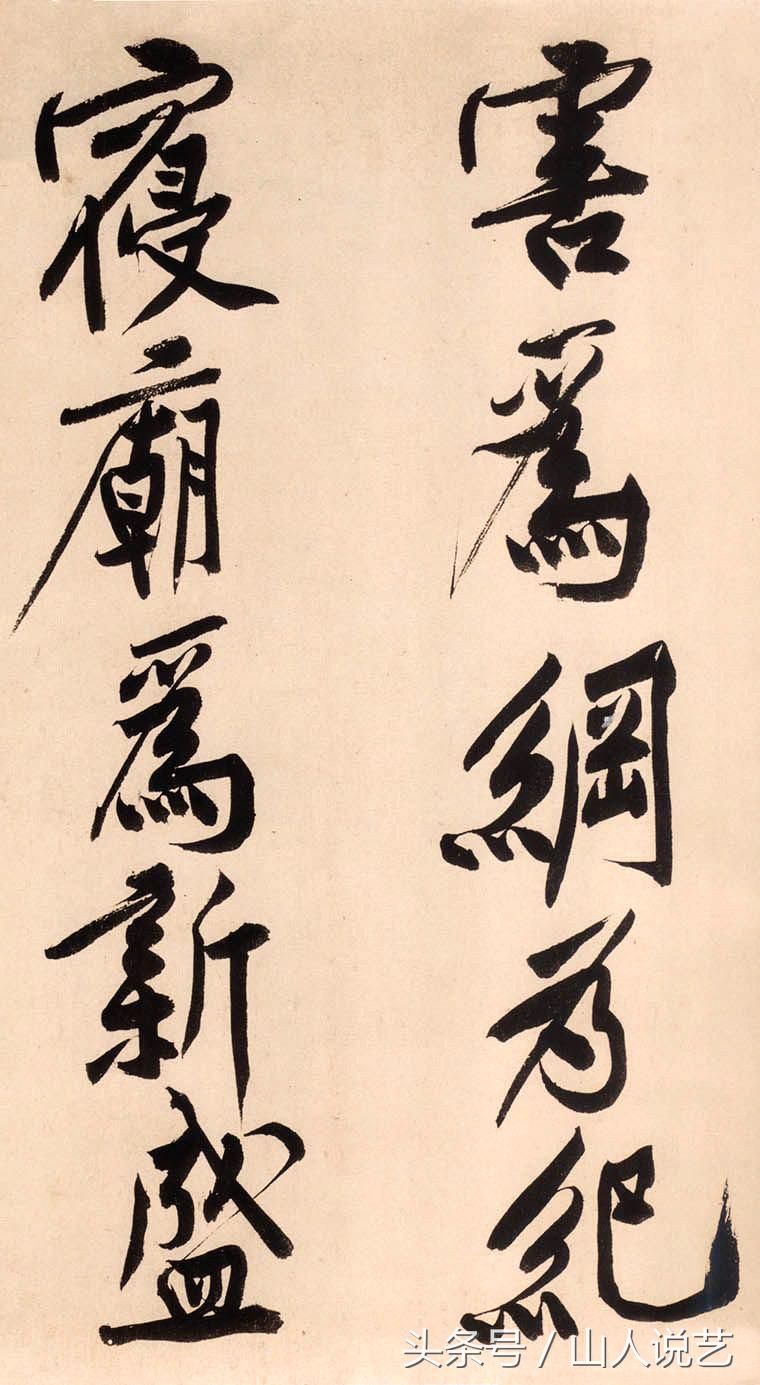 害爲綱為紀
寢廟爲新盛
头条号 / 山人说艺